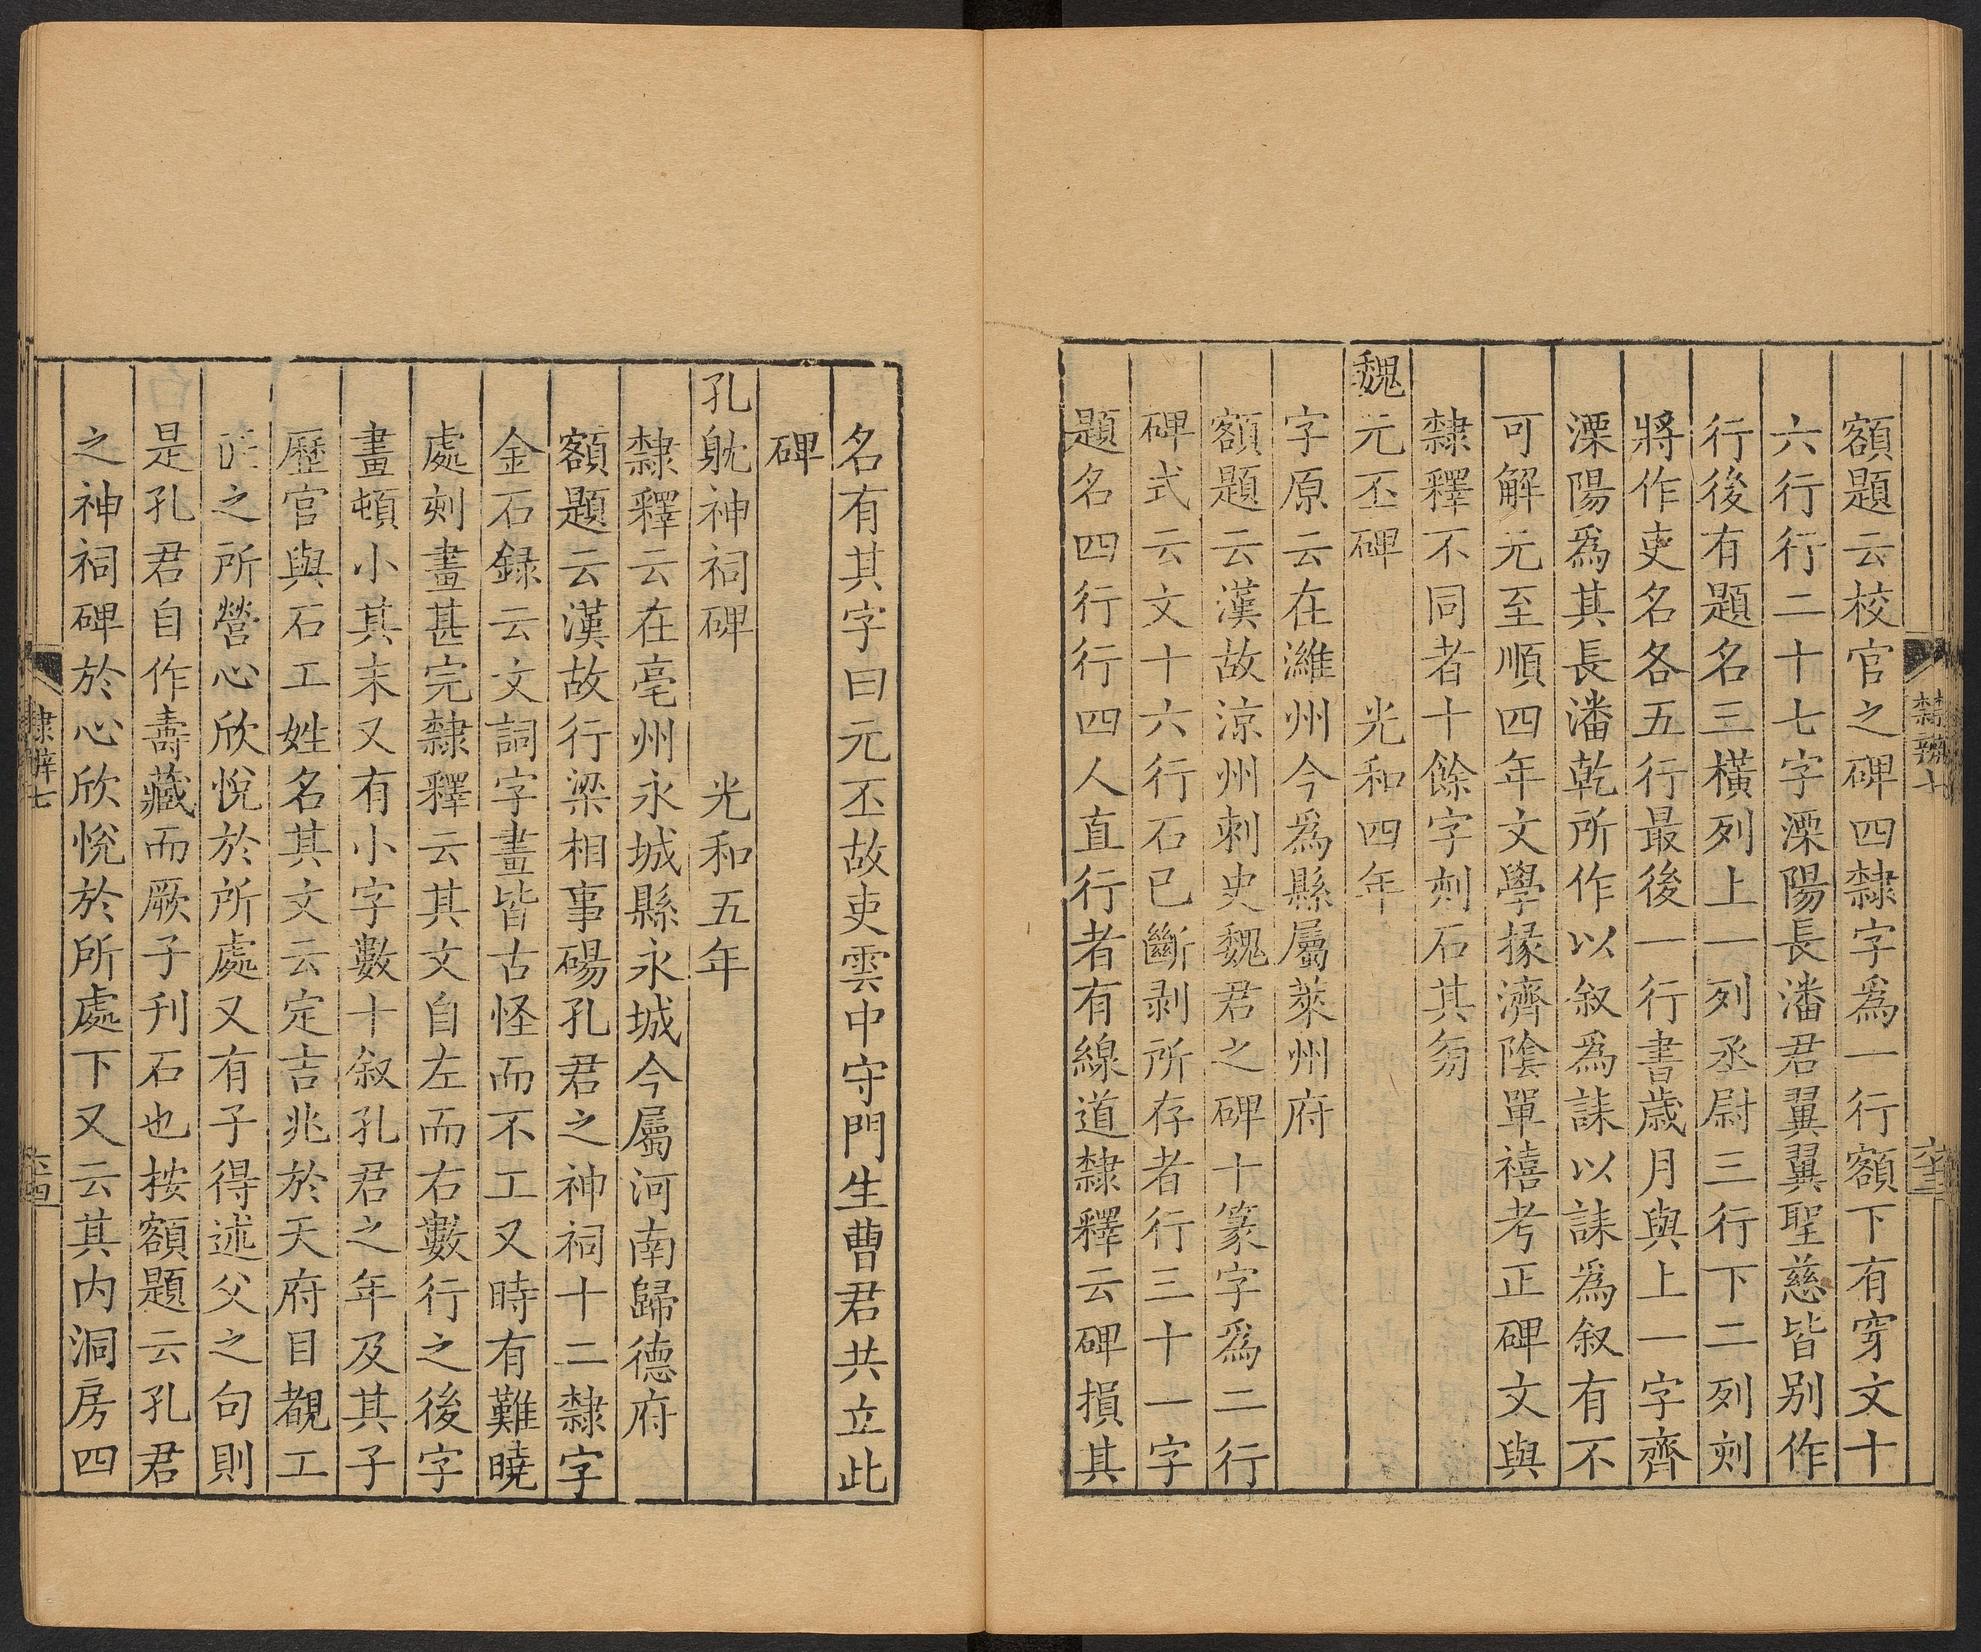 額題云校官之碑四隸字爲一行額下有穿文十
六行行二十七字溧陽長潘君翼翼聖慈皆別作
行後有題名三橫列上一列丞尉三行下二列刻
將作吏名各五行最後一行書歲月與上一字齊
溧陽爲其長潘乾所作以叙爲誄以誄爲叙有不
可解元至順四年文學掾濟陰單禧考正碑文與
隸釋不同者十餘字刻石其㫄
魏元丕碑 光和四年
字原云在濰州今爲縣屬萊州府
額題云漢故涼州刺史魏君之碑十篆字爲二行
碑式云文十六行石已斷剥所存者行三十一字
題名四行行四人直行者有線道隸釋云碑損其
名有其字曰元丕故吏雲中守門生曹君共立此
碑
孔耽神祠碑 光和五年
隸釋云在亳州永城縣永城今屬河南歸德府
額題云漢故行梁相事碭孔君之神祠十二隸字
金石録云文詞字畫皆古怪而不工又時有難曉
處刻畫甚完隸釋云其文自左而右數行之後字
畫頓小其末又有小字數十叙孔君之年及其子
歷官與石工姓名其文云定吉兆於天府目覩工
之所營心欣悅於所處又有子得述父之句則
是孔君自作壽藏而厥子刊石也按額題云孔君
之神祠碑於心欣悅於所處下又云其内洞房四
隸辨七
六十四